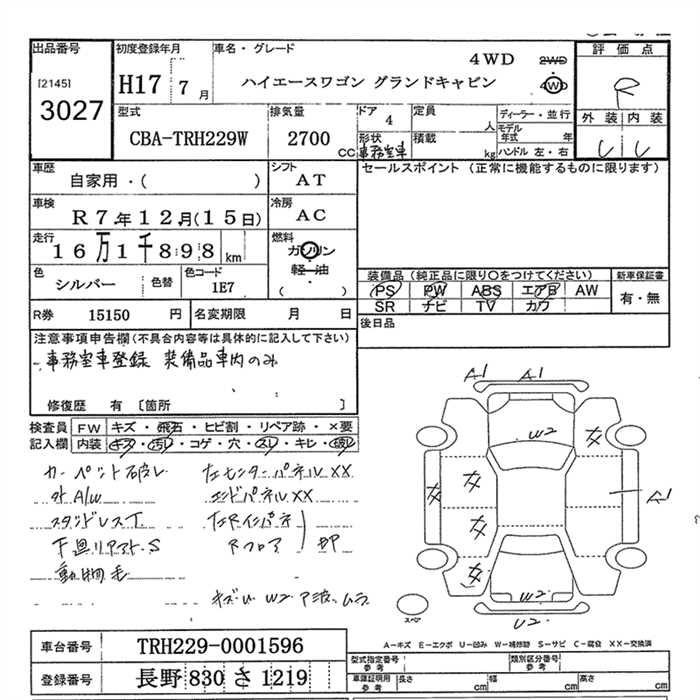 出品番号 初度登録年月 車名・グレード 4WD 2WD 評価点
[2145] H17 7月 ハイエースワゴン グランドキャビン 4WD R
3027
型式 排気量 ドア 定員 ディーラー・並行 外装 内装
CBA-TRH229W 2700 cc 4 人 モデル年式 年
形状 事務室車 積載 kg ハンドル 左・右
車歴 シフト セールスポイント (正常に機能するものに限ります)
自家用・( ) AT
車検 冷房
R7年12月(15日) AC
走行 燃料
16万1千898km ガソリン
軽・油
( )
色 シルバー 色替 色コード 1E7
装備品 (純正品に限り○をつけてください) 新車保証書
PS PW ABS エアB AW 有・無
SR ナビ TV カワ
R券 15150 円 名変期限 月 日 後日品
注意事項申告欄 (不具合内容等は具体的に記入して下さい)
事務室車登録 装備品車内のみ
修復歴 有 [箇所 ]
検査員 FW キズ・飛石・ヒビ割・リペア跡・×要
記入欄 内装 キズ・汚レ・コゲ・穴・スレ・キレ・破レ
カーペット破レ 左センターパネルXX
外A/W エンドパネルXX
動物毛
キズU W2 ア波 ムラ
A1 A1
W2
A1
W2
U2
スペア
A-キズ E-エクボ U-凹み W-補修跡 S-サビ C-腐食 XX-交換済
車台番号 TRH229-0001596
登録番号 長野 830 さ 1219
型式指定番号 参考 類別区分番号 参考
車庫証明用 参考 長さ cm 幅 cm 高さ cm